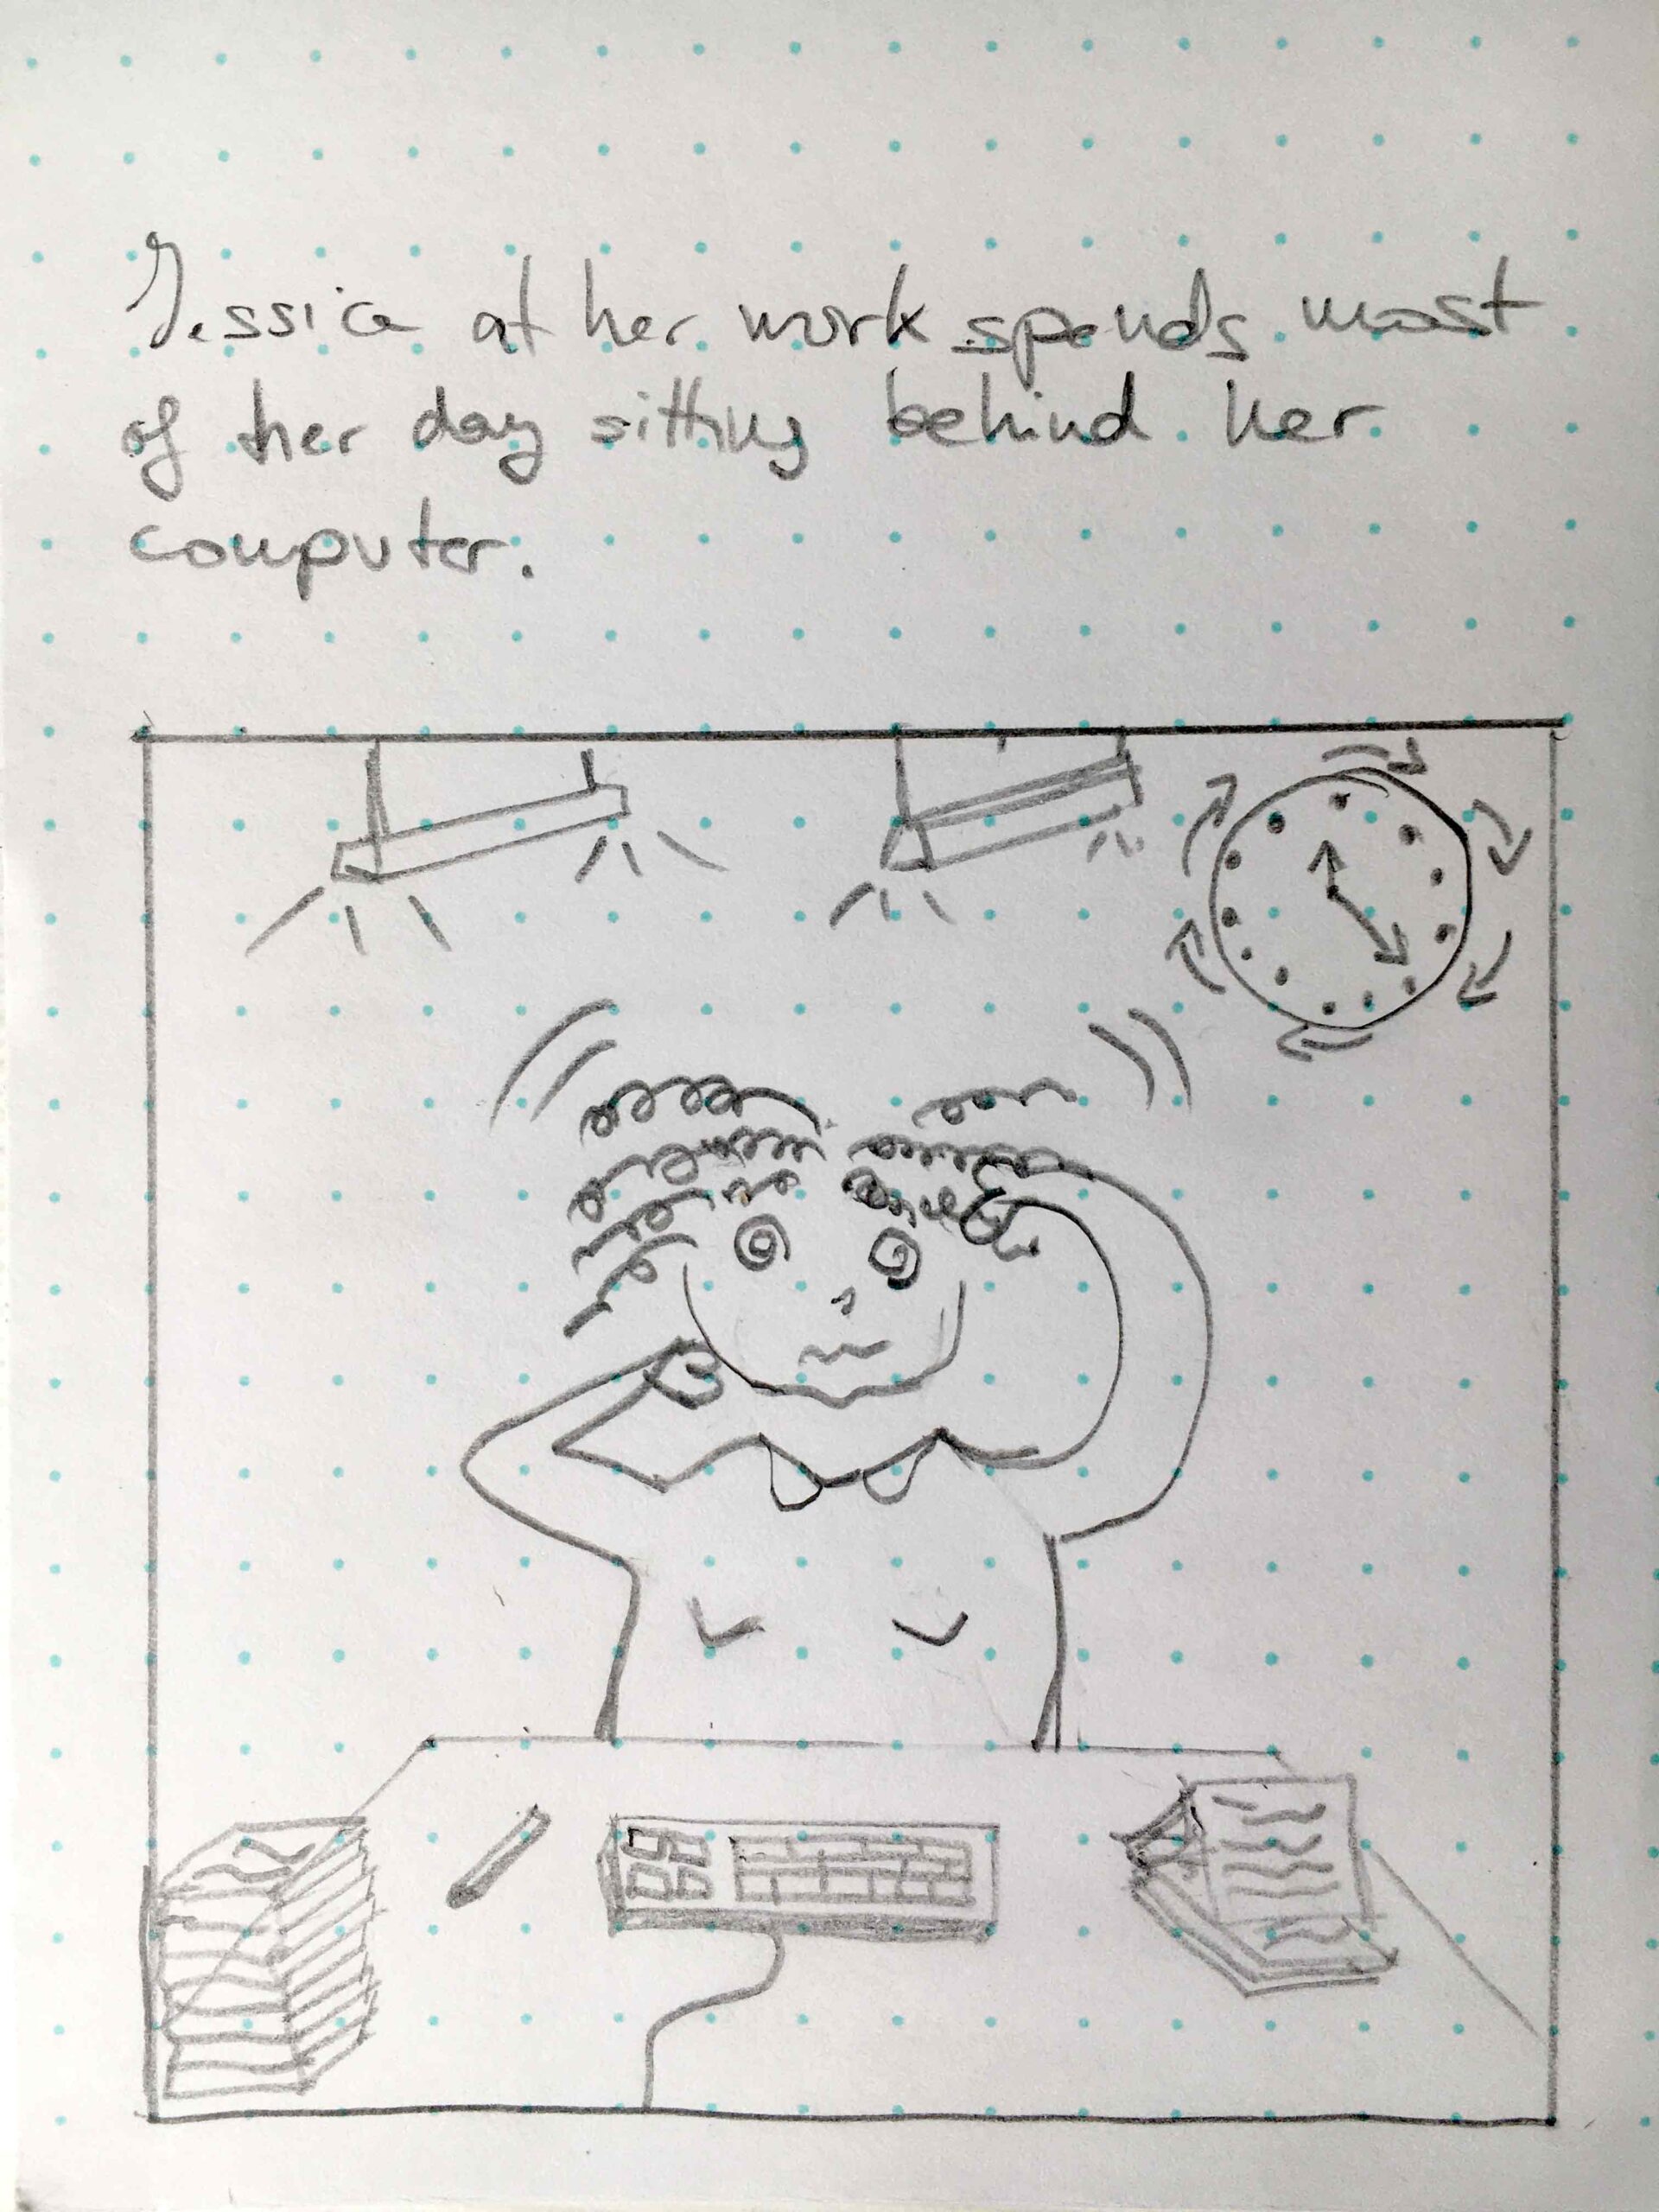 Jessica at her work spends most
of her day sitting behind her
computer.